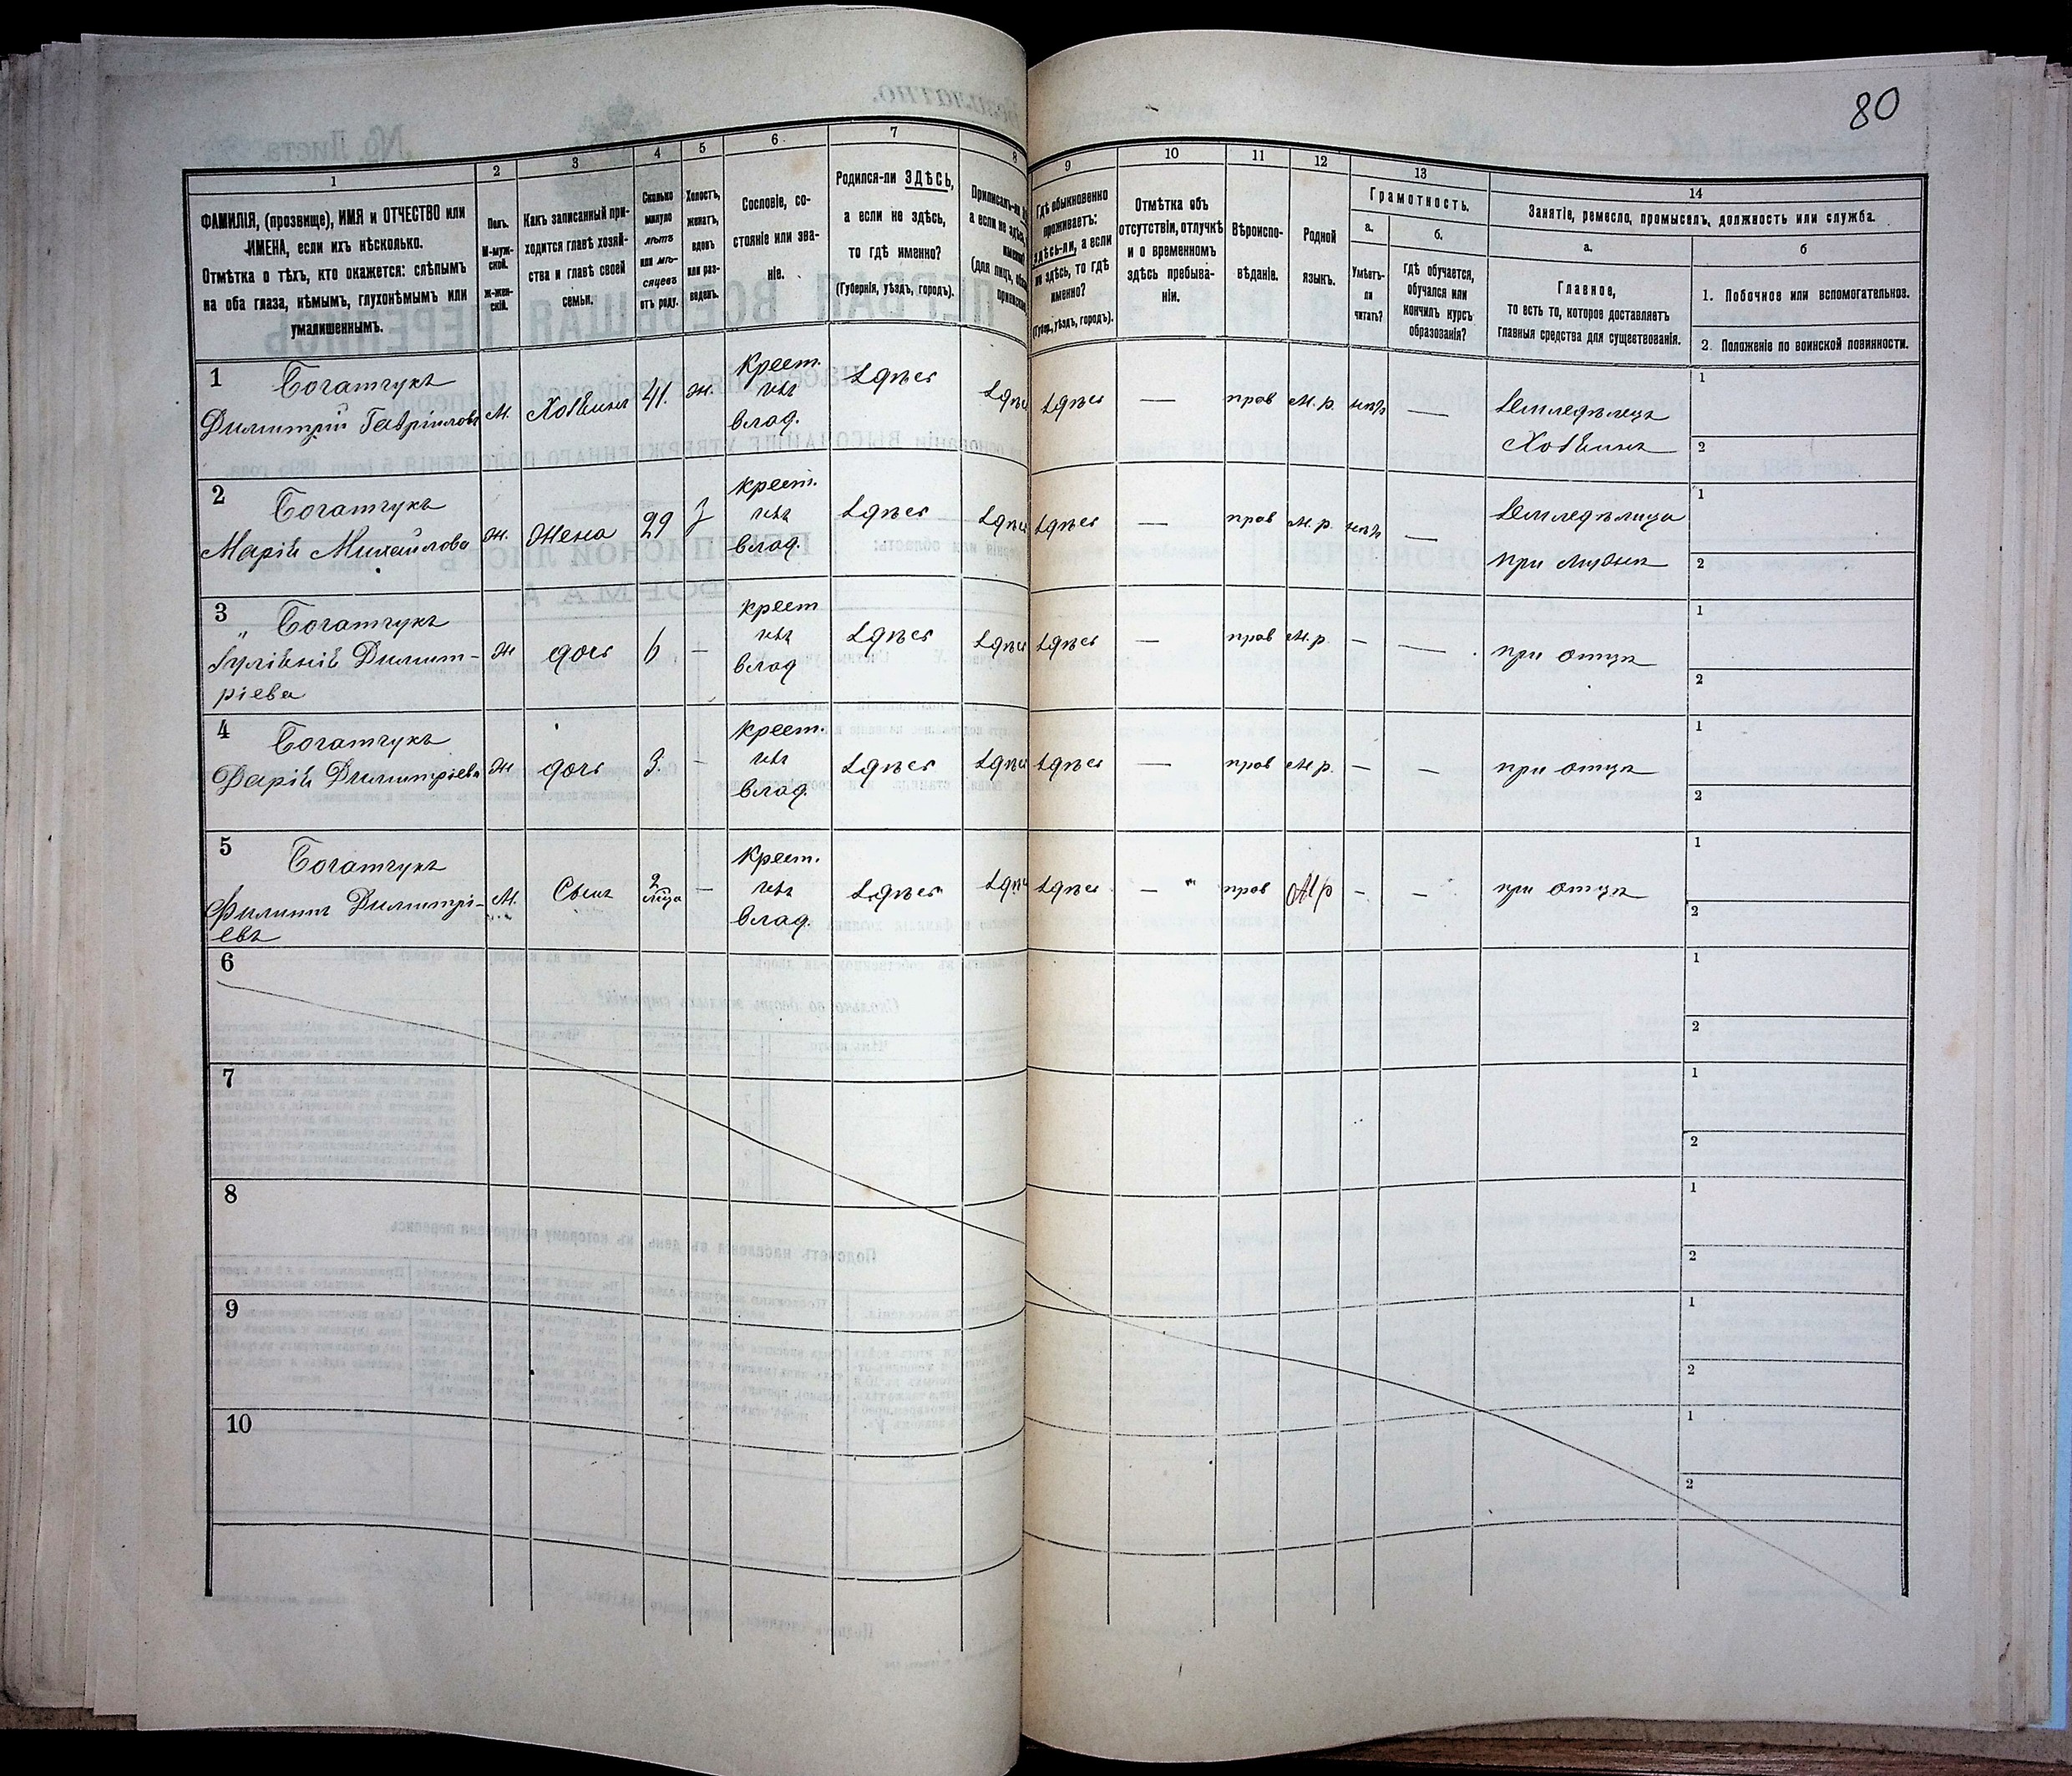 80
1
2
3
4
5
6
7
8
9
10
11
12
13
14
ФАМИЛІЯ, (прозвище), ИМЯ и ОТЧЕСТВО или
ИМЕНА, если ихъ нѣсколько.
Отмѣтка о тѣхъ, кто окажется: слѣпымъ
на оба глаза, нѣмымъ, глухонѣмымъ или
умалишеннымъ.
Полъ.
М-муж-
ской.
Ж-жен-
скій.
Какъ записанный при-
ходится главѣ хозяй-
ства и главѣ своей
семьи.
Сколько
минуло
лѣтъ
или мѣ-
сяцевъ
отъ роду.
Холостъ,
женатъ,
вдовъ
или раз-
веденъ.
Сословіе, со-
стояніе или зва-
ніе.
Родился-ли ЗДѢСЬ,
а если не здѣсь,
то гдѣ именно?
(Губернія, уѣздъ, городъ).
Гдѣ обыкновенно
проживаетъ:
здѣсь-ли, а если
не здѣсь, то гдѣ
именно?
(Губер., уѣздъ, городъ).
Отмѣтка объ
отсутствіи, отлучкѣ
и о временномъ
здѣсь пребыва-
ніи.
Вѣроиспо-
вѣданіе.
Родной
языкъ.
Грамотность.
а.
Умѣетъ-
ли
читать?
б.
гдѣ обучается,
обучался или
кончилъ курсъ
образованія?
Занятіе, ремесло, промыселъ, должность или служба.
а.
Главное,
то есть то, которое доставляетъ
главныя средства для существованія.
б
1. Побочное или вспомогательное.
2. Положеніе по воинской повинности.
1 Богатчукъ
Димитрій Гавріиловъ М. Хозяинъ 41. ж. Крест. изъ влад. Здѣсь Здѣсь Здѣсь — прав М. р. нѣтъ — Земледѣлецъ
Хозяинъ
1
2
2 Богатчукъ
Марія Михайлова Ж. Жена 29 З Крест. изъ влад. Здѣсь Здѣсь Здѣсь — прав М. р. нѣтъ — Земледѣлица
при мужѣ
1
2
3 „ Богатчукъ
Димит-
ріева Ж дочь 6 — Крест изъ влад Здѣсь Здѣсь Здѣсь — прав М. р. — — при отцѣ
1
2
4 Богатчукъ
Дарія Димитріева Ж дочь 3. - Крест. изъ влад. Здѣсь Здѣсь Здѣсь — прав М р. — — при отцѣ
1
2
5 Богатчукъ
Филиппъ Димитрі-
евъ М. Сынъ 2 мѣся — Крест. изъ влад. Здѣсь Здѣсь Здѣсь — прав М р — — при отцѣ
1
2
6
1
2
7
1
2
8
1
2
9
1
2
10
1
2